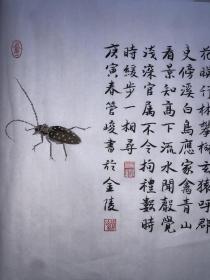 花暎竹林攀樹玄猿呼郡
吏傍溪白鳥應家禽青山
看景知高下流水聞聲覺
淺深官屬不令拘禮數時
時緩步一相尋
庚寅春管峻書於金陵